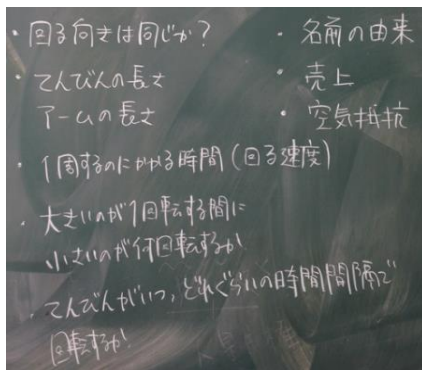 ・回る向きは同じか?
・てんびんの長さ
アームの長さ
・1周するのにかかる時間(回る速度)
・大きいのが1回転する間に
小さいのが何回転するか
・てんびんがいつ,どれぐらいの時間間隔で
回転するか!
・名前の由来
・売上
・空気抵抗